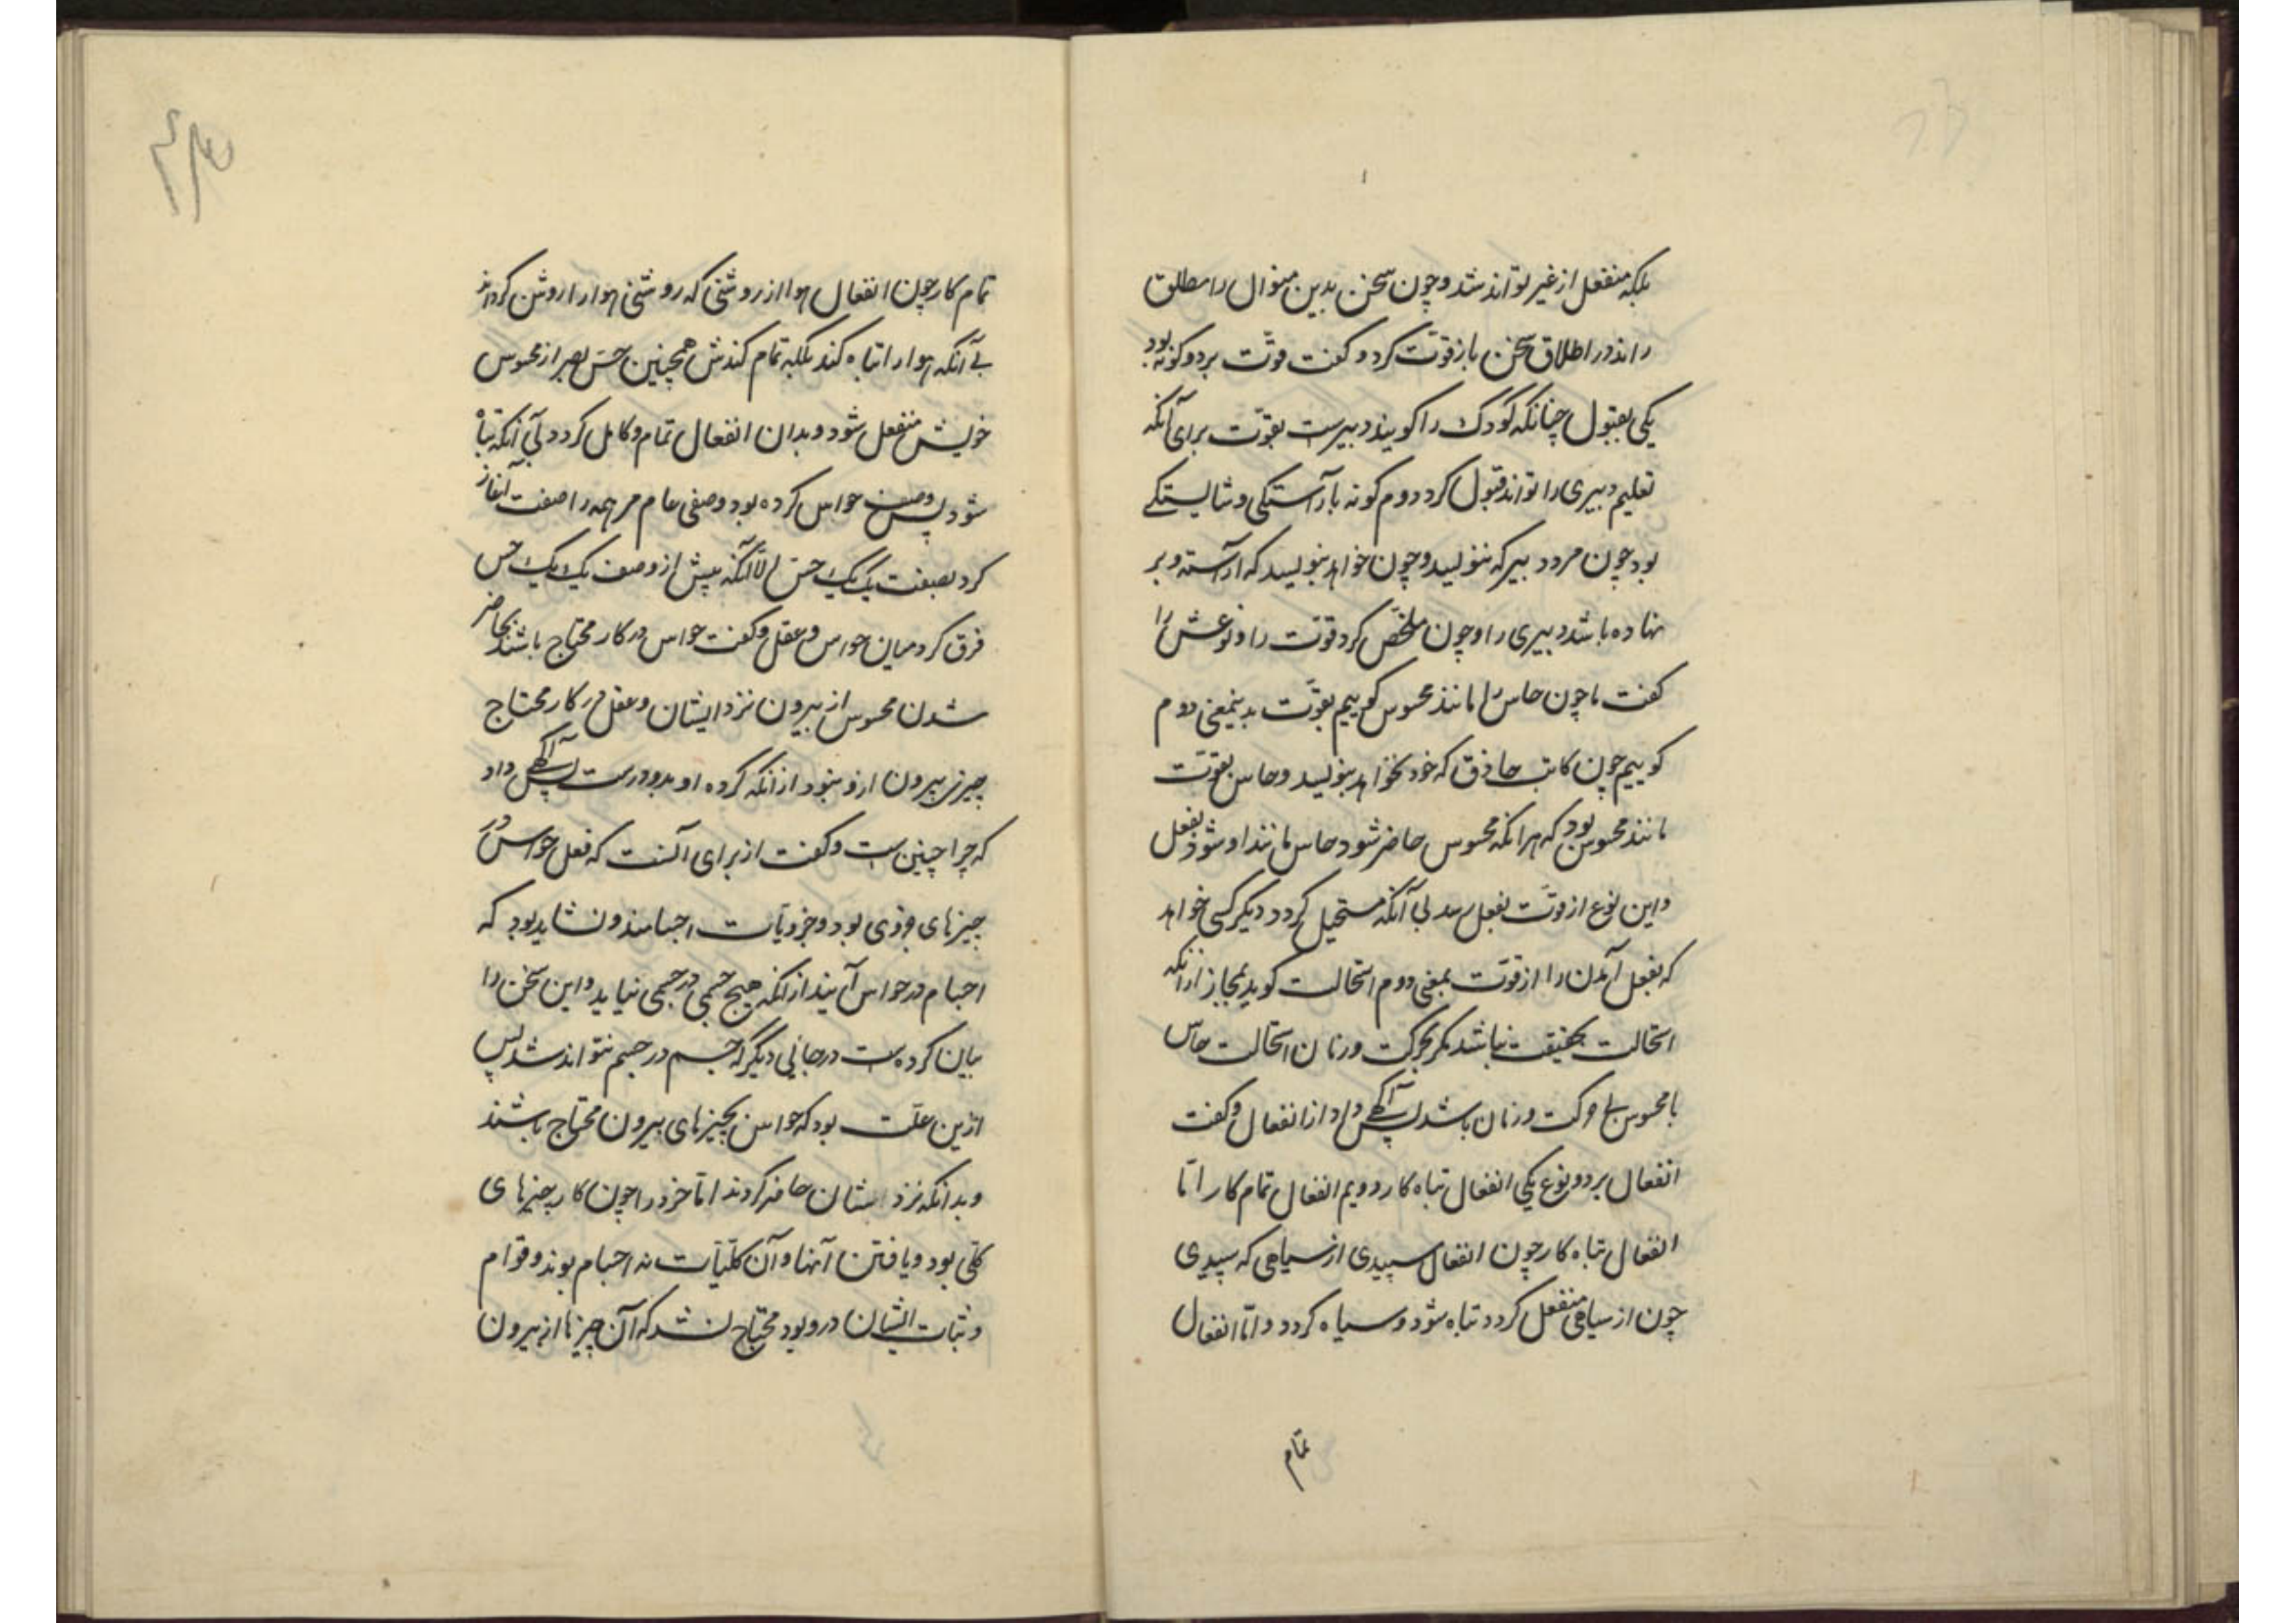 بلکه منفعل از غیر تواند شد و چون سخن بدین منوال را مطلق
راند در اطلاق سخن باز قوّت کرد و کفت قوّت بر دو کونه بود
یکی بقبول چنانکه کودک را کویند دبیرست بقوّت برای آنکه
تعلیم دبیری را تواند قبول کرد دوم کونه بآراستکی و شایستکے
بود چون مرد دبیر که ننویسد و چون خواهد بنویسد که آراسته و بر
نهاده باشد دبیری را و چون ملخّص کرد قوّت را و نوعش را
کفت ما چون حاس را مانند محسوس کوییم بقوّت بدینمعنی دوم
کوییم چون کاتب حاذق که خود نخواهد بنویسد و حاس بقوّت
مانند محسوس بود که هرانکه محسوس حاضر شود حاس مانند او شود بفعل
و این نوع از قوّت بفعل رسد بی آنکه مستحیل کردد دیکر کسی خواهد
که بفعل آمدن را از قوّت بمعنی دوم استحالت کوید بمجاز ازانکه
استحالت بحقیقت نباشد مکر بحرکت و زمان استحالت حاس
با محسوس بی حرکت و زمان باشد پس آکهی داد از انفعال و کفت
انفعال بر دو نوع یکی انفعال تباه کار دویم انفعال تمام کار امّا
انفعال تباه کار چون انفعال سپیدی از سیاهی که سپیدی
چون از سیاهی منفعل کردد تباه شود و سیاه کردد و امّا انفعال
تمام
تمام کار چون انفعال هوا از روشنی که روشنی هوا را روشن کرداند
بے آنکه هوا را تباه کند بلکه تمام کندش همچنین حسّ بصر از محسوس
خویش منفعل شود و بدان انفعال تمام و کامل کردد بی آنکه تباه
شود پس وصف حواس کرده بود وصفی عام مر همه را صفت آغاز
کرد بصفت یک یک حسّ الّا آنکه پیش از وصف یک یک حس
فرق کرد میان حواس و عقل و کفت حواس در کار محتاج باشند بحاضر
شدن محسوس از بیرون نزد ایشان و عقل در کار محتاج
چیز بیرون ازو نبود ازانکه کرده او بدو درست پس آکهی داد
که چرا چنین است و کفت از برای آنست که فعل حواس در
چیزهای جزوی بود و جزویات اجسامند و نشاید بود که
اجسام در حواس آیند ازانکه هیچ جسمی در جسمی نیاید و این سخن را
بیان کرده است در جائی دیکر که جسم در جسم نتواند شد پس
ازین علّت بود که حواس بچیزهای بیرون محتاج باشند
و بدانکه نزد ایشان حاضر کردند امّا خرد را چون کار بچیزهای
کلّی بود و یافتن آنها و آن کلّیّات نه اجسام بوند و قوام
و ثبات ایشان درو بود محتاج نشد که آن چیزها از بیرون